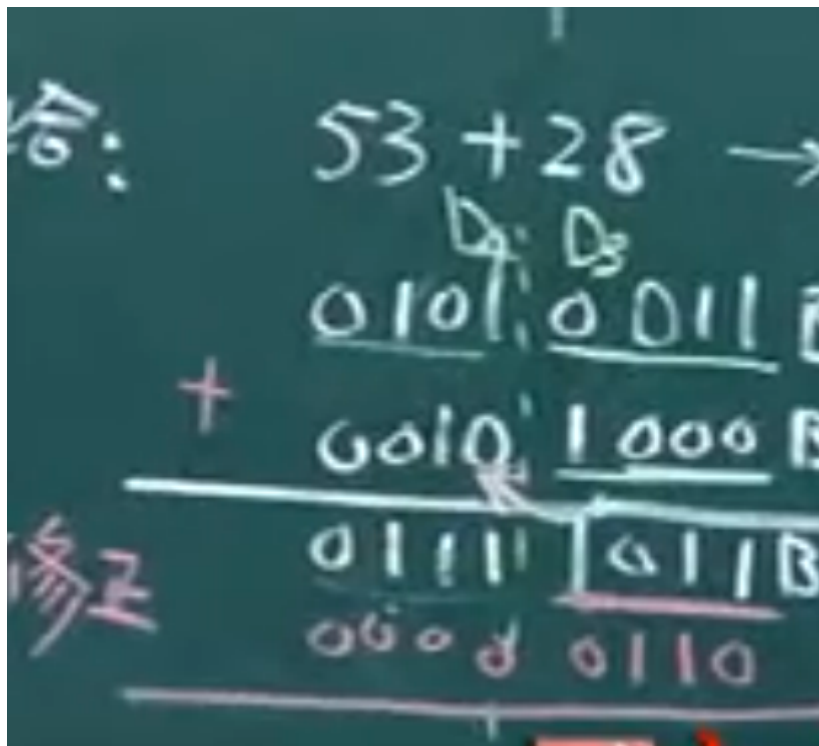 答: 53 + 28 →
D₄ D₃
0101 0011 B
+ 0010 1000 B
0111 1011 B
修正 0000 0110